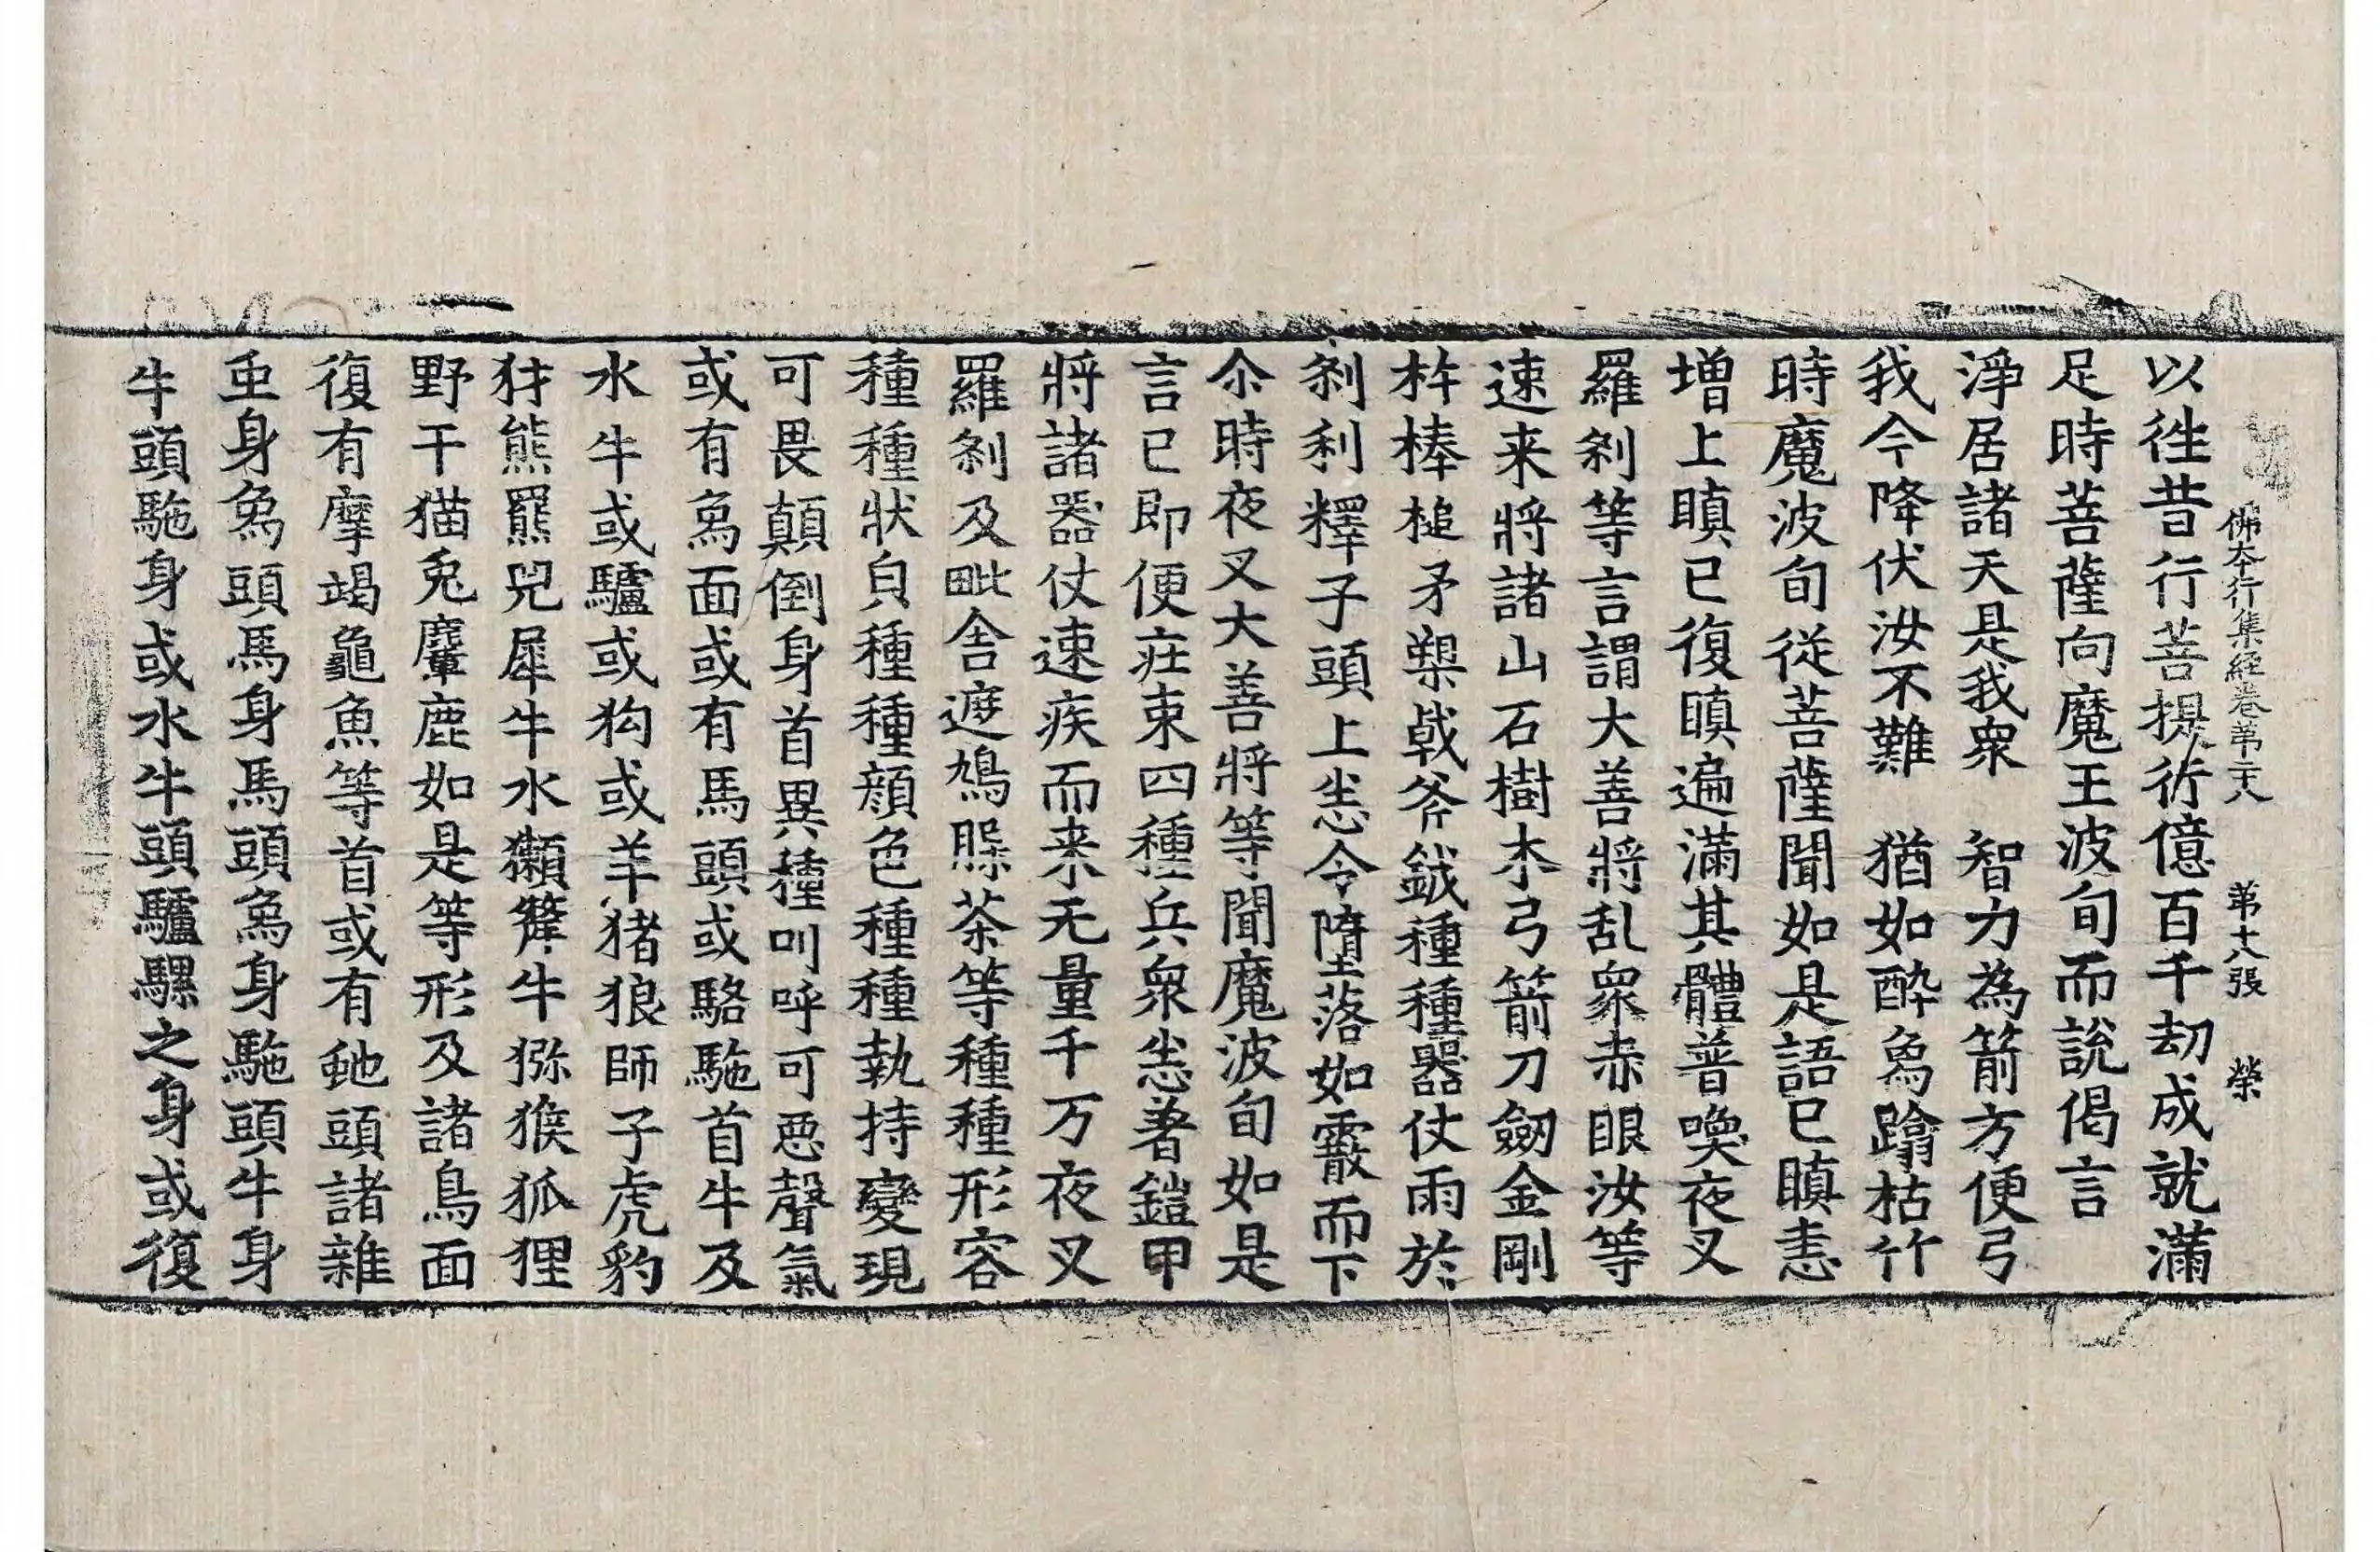 佛本行集經卷第二八 第十八張 榮
以徃昔行菩提行億百千劫成就滿
足時菩薩向魔王波旬而說偈言
淨居諸天是我衆 智力為箭方便弓
我今降伏汝不難 猶如醉爲蹋枯竹
時魔波旬從菩薩聞如是語已瞋恚
增上瞋已復瞋遍滿其體普喚夜叉
羅剎等言謂大善將乱衆赤眼汝等
速来將諸山石樹木弓箭刀劒金剛
杵棒槌矛槊戟斧鉞種種器仗雨於
剎利釋子頭上恙令墮落如霰而下
尒時夜叉大善將等聞魔波旬如是
言已即便庄束四種兵衆恙著鎧甲
將諸器仗速疾而来无量千万夜叉
羅剎及毗舍遮鳩槃茶等種種形容
種種狀皃種種顔色種種執持變現
可畏顛倒身首異種叫呼可惡聲氣
或有爲面或有馬頭或駱駞首牛及
水牛或驢或狗或羊猪狼師子虎豹
犲熊羆兕犀牛水獺犛牛猕猴狐狸
野干猫兎麞鹿如是等形及諸鳥面
復有摩竭龜魚等首或有虵頭諸雜
虫身爲頭馬身馬頭爲身駞頭牛身
牛頭駞身或水牛頭驢騾之身或復